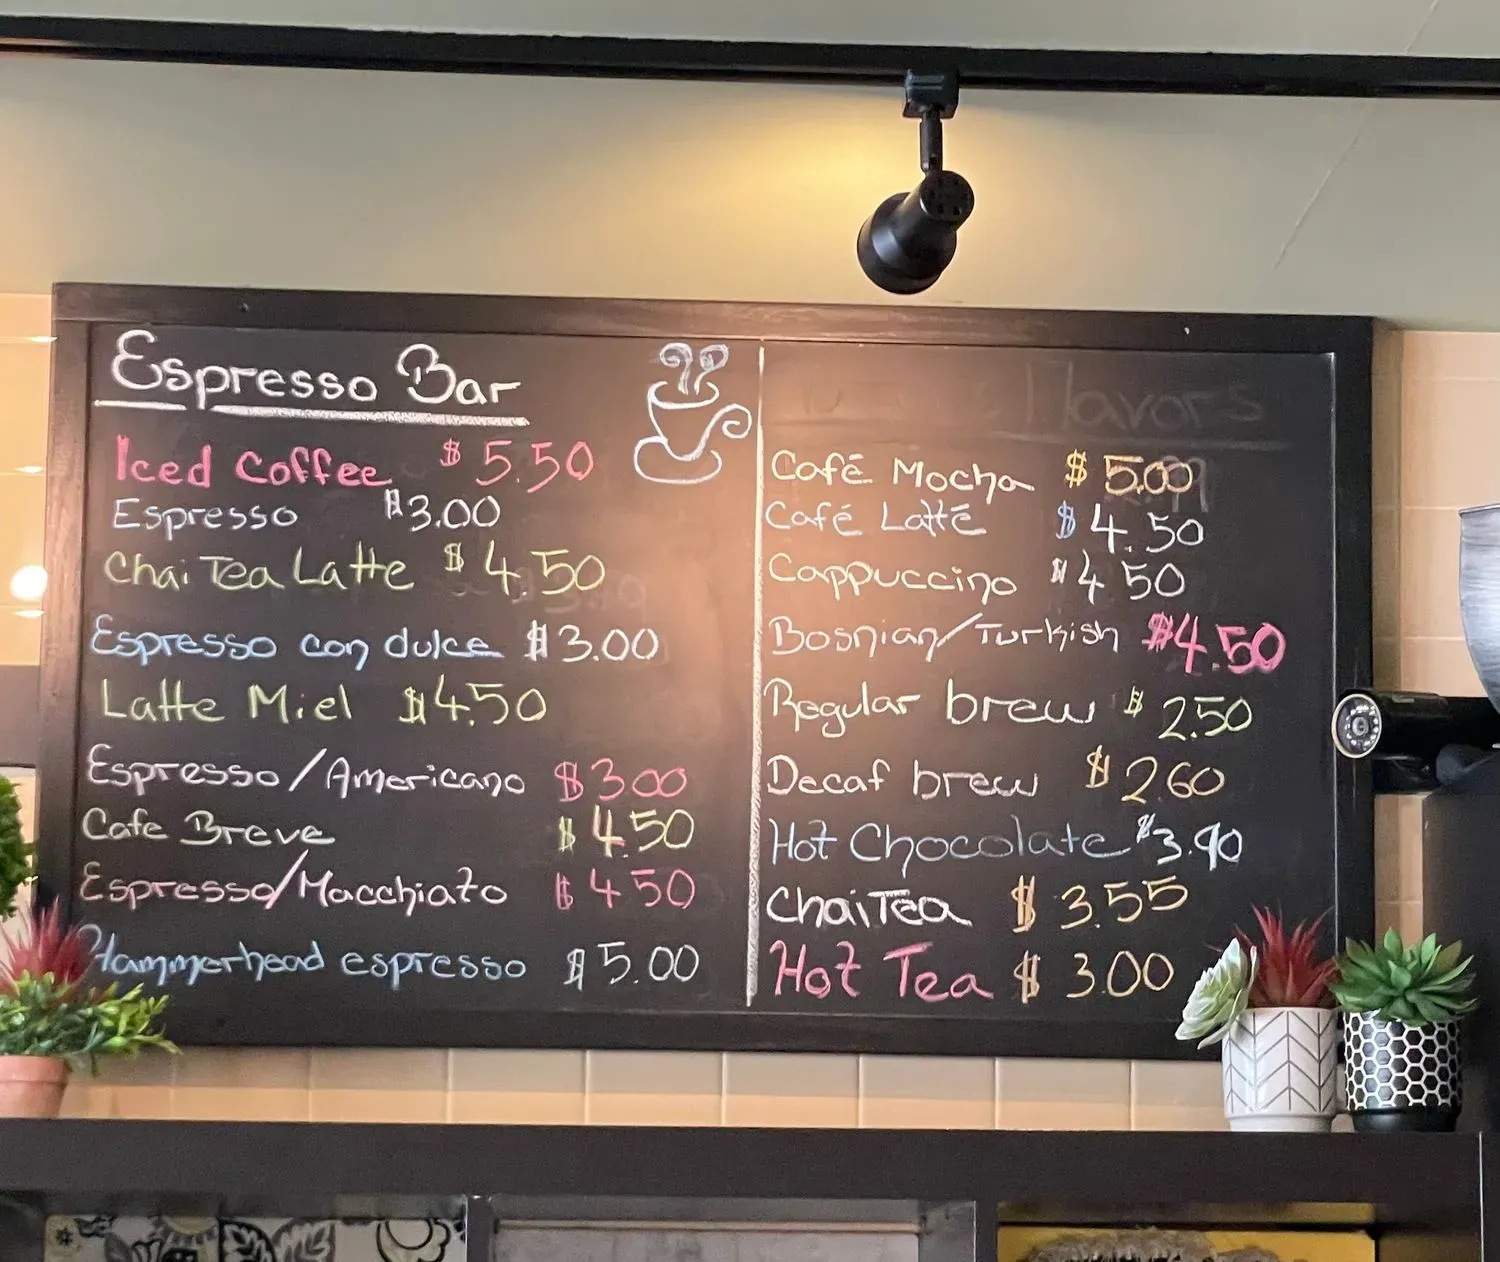 Espresso Bar
Iced Coffee $ 5.50
Espresso $3.00
Chai Tea Latte $ 4.50
Espresso con dulce $3.00
Latte Miel $4.50
Espresso/Americano $3.00
Cafe Breve $4.50
Espresso/Macchiato $4.50
Hammerhead espresso $5.00
Flavors
Café Mocha $5.00
Café Latté $4.50
Cappuccino $4.50
Bosnian/Turkish $4.50
Regular brew $2.50
Decaf brew $2.60
Hot Chocolate $3.90
Chai Tea $3.55
Hot Tea $3.00